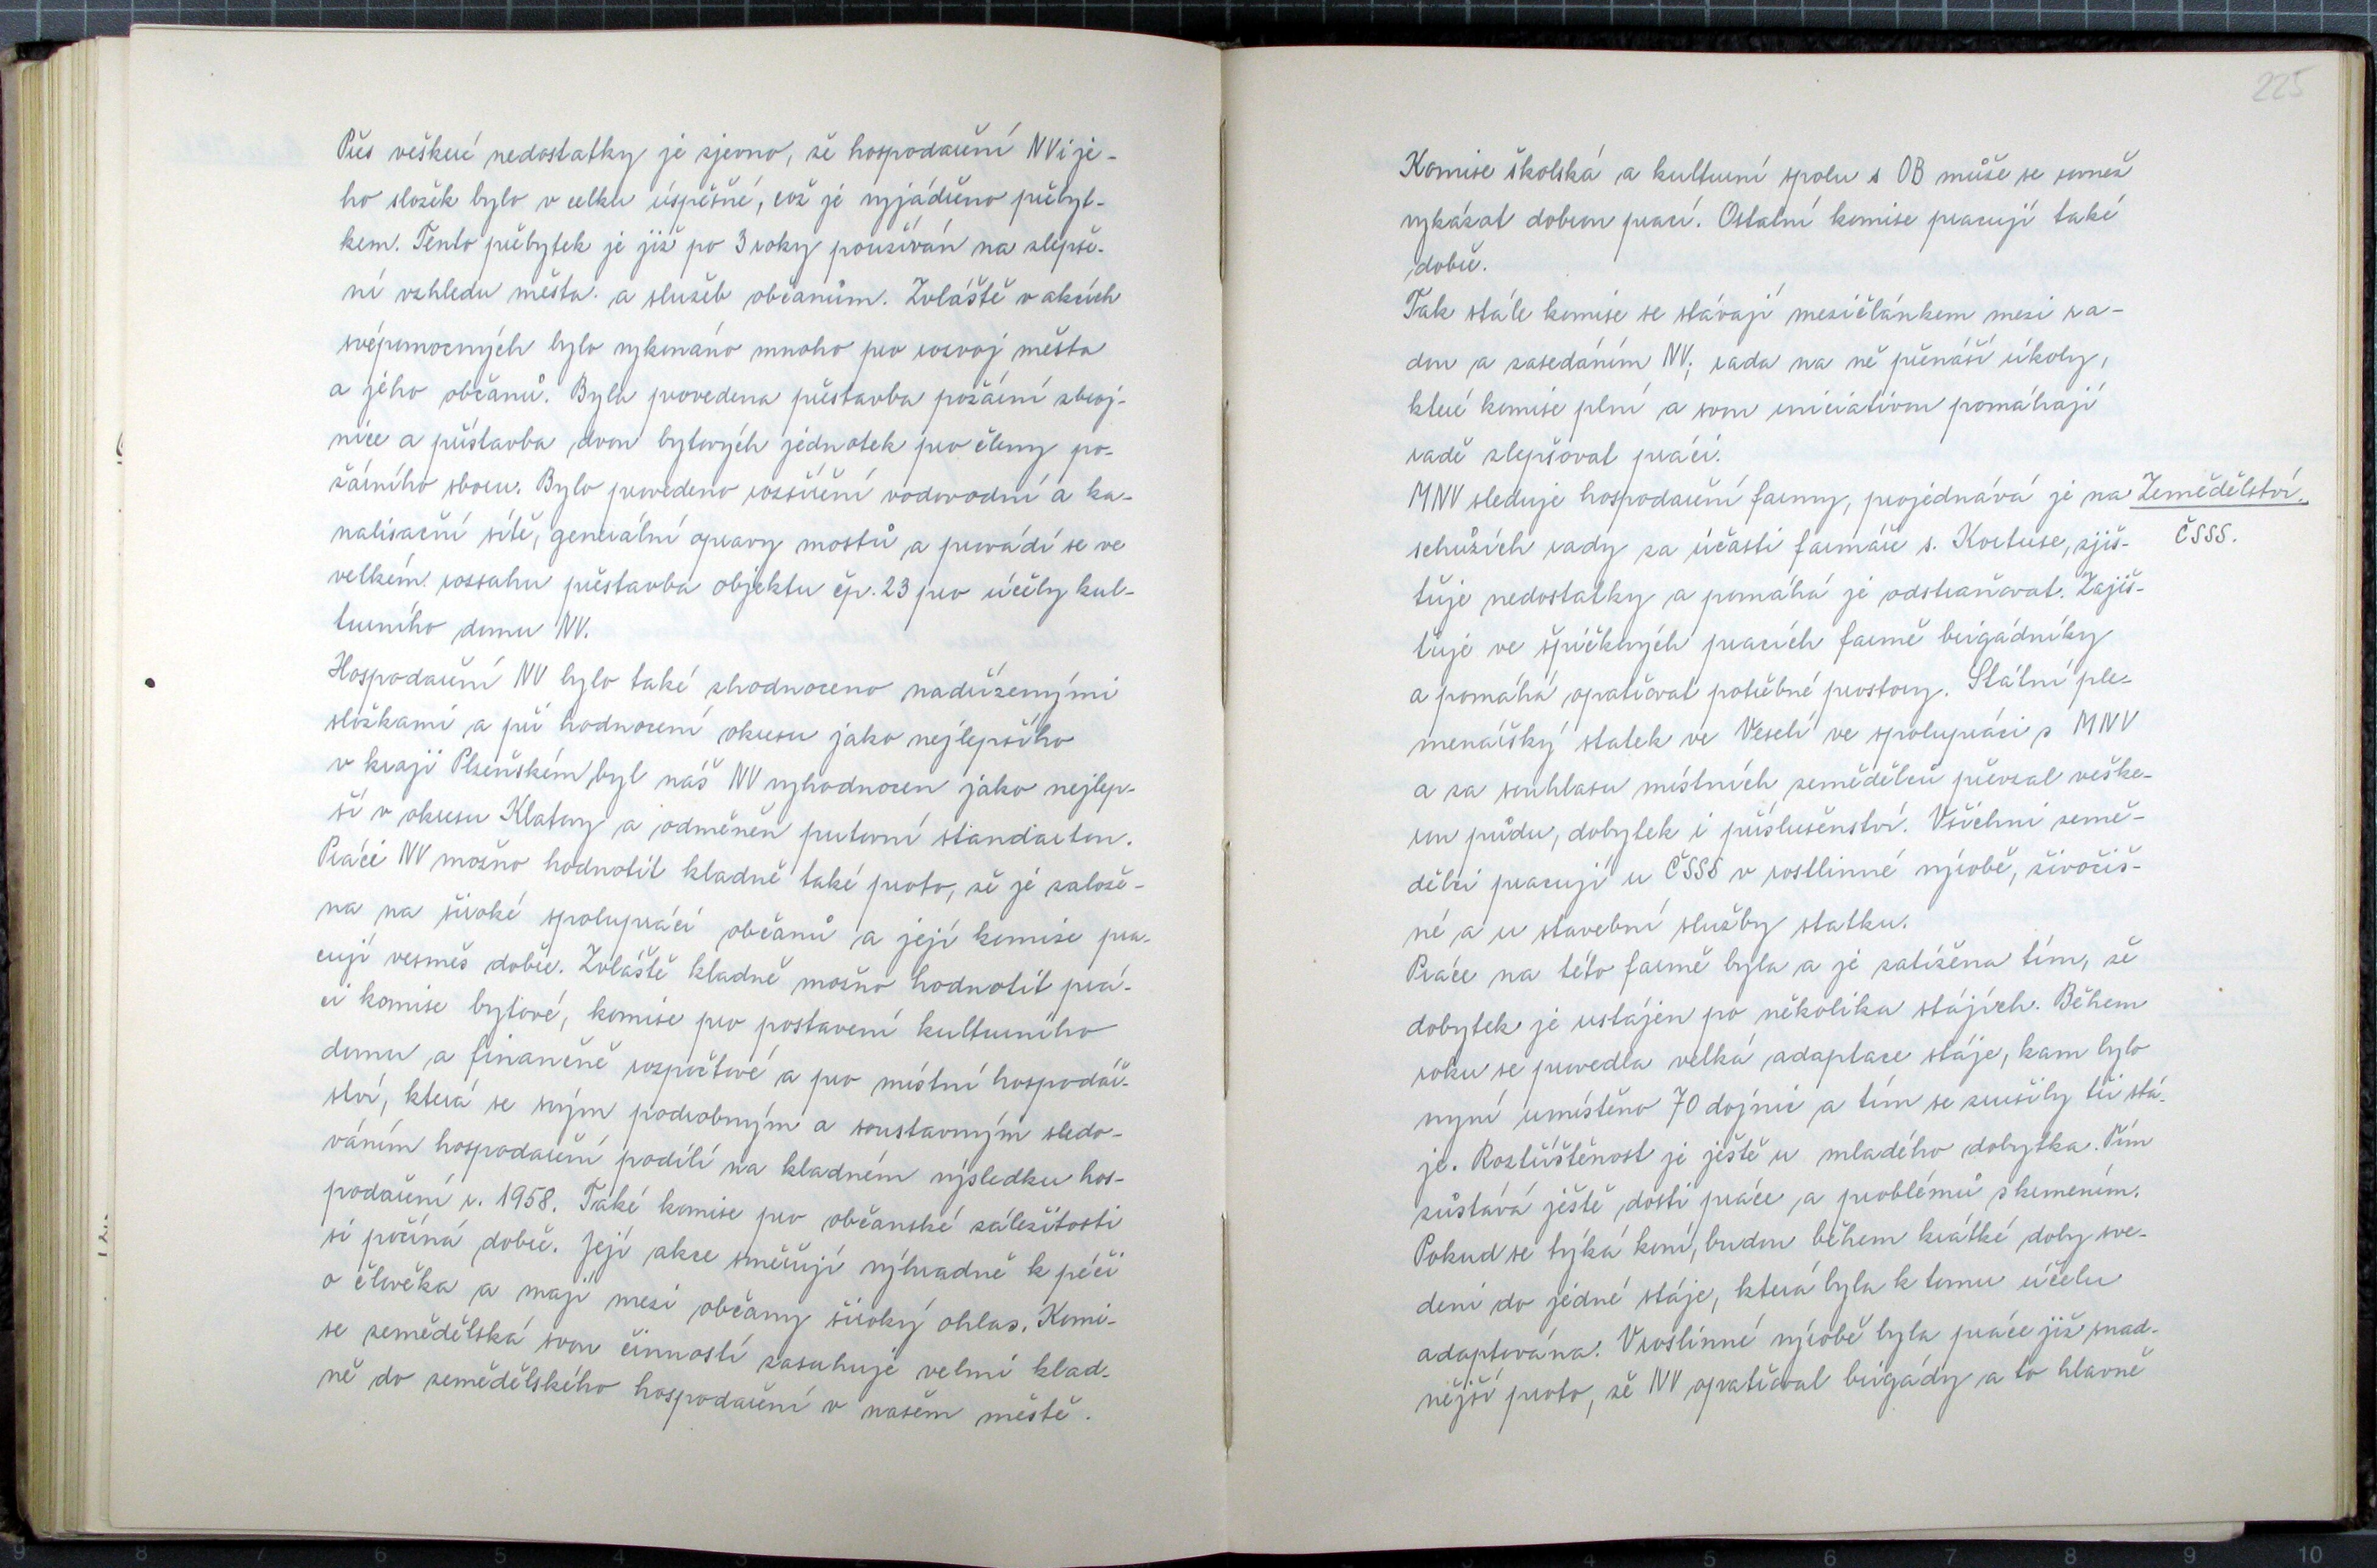 Přes veškeré nedostatky je zjevno, že hospodaření NV i je-
ho složek bylo v celku úspěšné, což je vyjádřeno přebyt-
kem. Tento přebytek je již po 3 roky používán na zlepše-
ní vzhledu města a služeb občanům. Zvláště v akcích
svépomocných bylo vykonáno mnoho pro rozvoj města
a jeho občanů. Byla provedena přestavba požární zbroj-
nice a přístavba dvou bytových jednotek pro členy po-
žárního sboru. Bylo provedeno rozšíření vodovodní a ka-
nalisační sítě, generální opravy mostů a provádí se ve
velkém rozsahu přestavba objektu čp. 23 pro účely kul-
turního domu NV.
Hospodaření NV bylo také zhodnoceno nadřízenými
složkami a při hodnocení okresu jako nejlepšího
v kraji Plzeňském byl náš NV vyhodnocen jako nejlep-
ší v okresu Klatovy a odměněn putovní standartou.
Práci NV možno hodnotit kladně také proto, že je založe-
na na široké spolupráci občanů a její komise pra-
cují vesměs dobře. Zvláště kladně možno hodnotit prá-
ci komise bytové, komise pro postavení kulturního
domu a finančně rozpočtové a pro místní hospodář-
ství, která se svým podrobným a soustavným sledo-
váním hospodaření podílí na kladném výsledku hos-
podaření r. 1958. Také komise pro občanské záležitosti
si počíná dobře. Její akce směřují výhradně k péči
o člověka a mají mezi občany široký ohlas. Komi-
se zemědělská svou činností zasahuje velmi klad-
ně do zemědělského hospodaření v našem městě.
225
Komise školská a kulturní spolu s OB může se rovněž
vykázat dobrou prací. Ostatní komise pracují také
dobře.
Tak stále komise se stávají mezičlánkem mezi ra-
dou a zasedáním NV; rada na ně přenáší úkoly,
které komise plní a svou iniciativou pomáhají
radě zlepšovat práci.
MNV sleduje hospodaření farmy, projednává je na Zemědělství.
schůzích rady za účasti farmáře s. Kortuse, zjiš- ČSSS.
ťuje nedostatky a pomáhá je odstraňovat. Zajiš-
ťuje ve špičkových pracích farmě brigádníky
a pomáhá opatřovat potřebné prostory. Státní ple-
menářský statek ve Veselí ve spolupráci s MNV
a za souhlasu místních zemědělců převzal veške-
rou půdu, dobytek i příslušenství. Všichni země-
dělci pracují u ČSSS v rostlinné výrobě, živočiš-
né a u stavební služby statku.
Práce na této farmě byla a je zatížena tím, že
dobytek je ustájen po několika stájích. Během
roku se provedla velká adaptace stáje, kam bylo
nyní umístěno 70 dojnic a tím se zrušily tři stá-
je. Roztříštěnost je ještě u mladého dobytka. Tím
zůstává ještě dosti práce a problémů s krmením.
Pokud se týká koní, budou během krátké doby sve-
deni do jedné stáje, která byla k tomu účelu
adaptována. V roslinné výrobě byla práce již snad-
nější proto, že NV opatřoval brigády a to hlavně